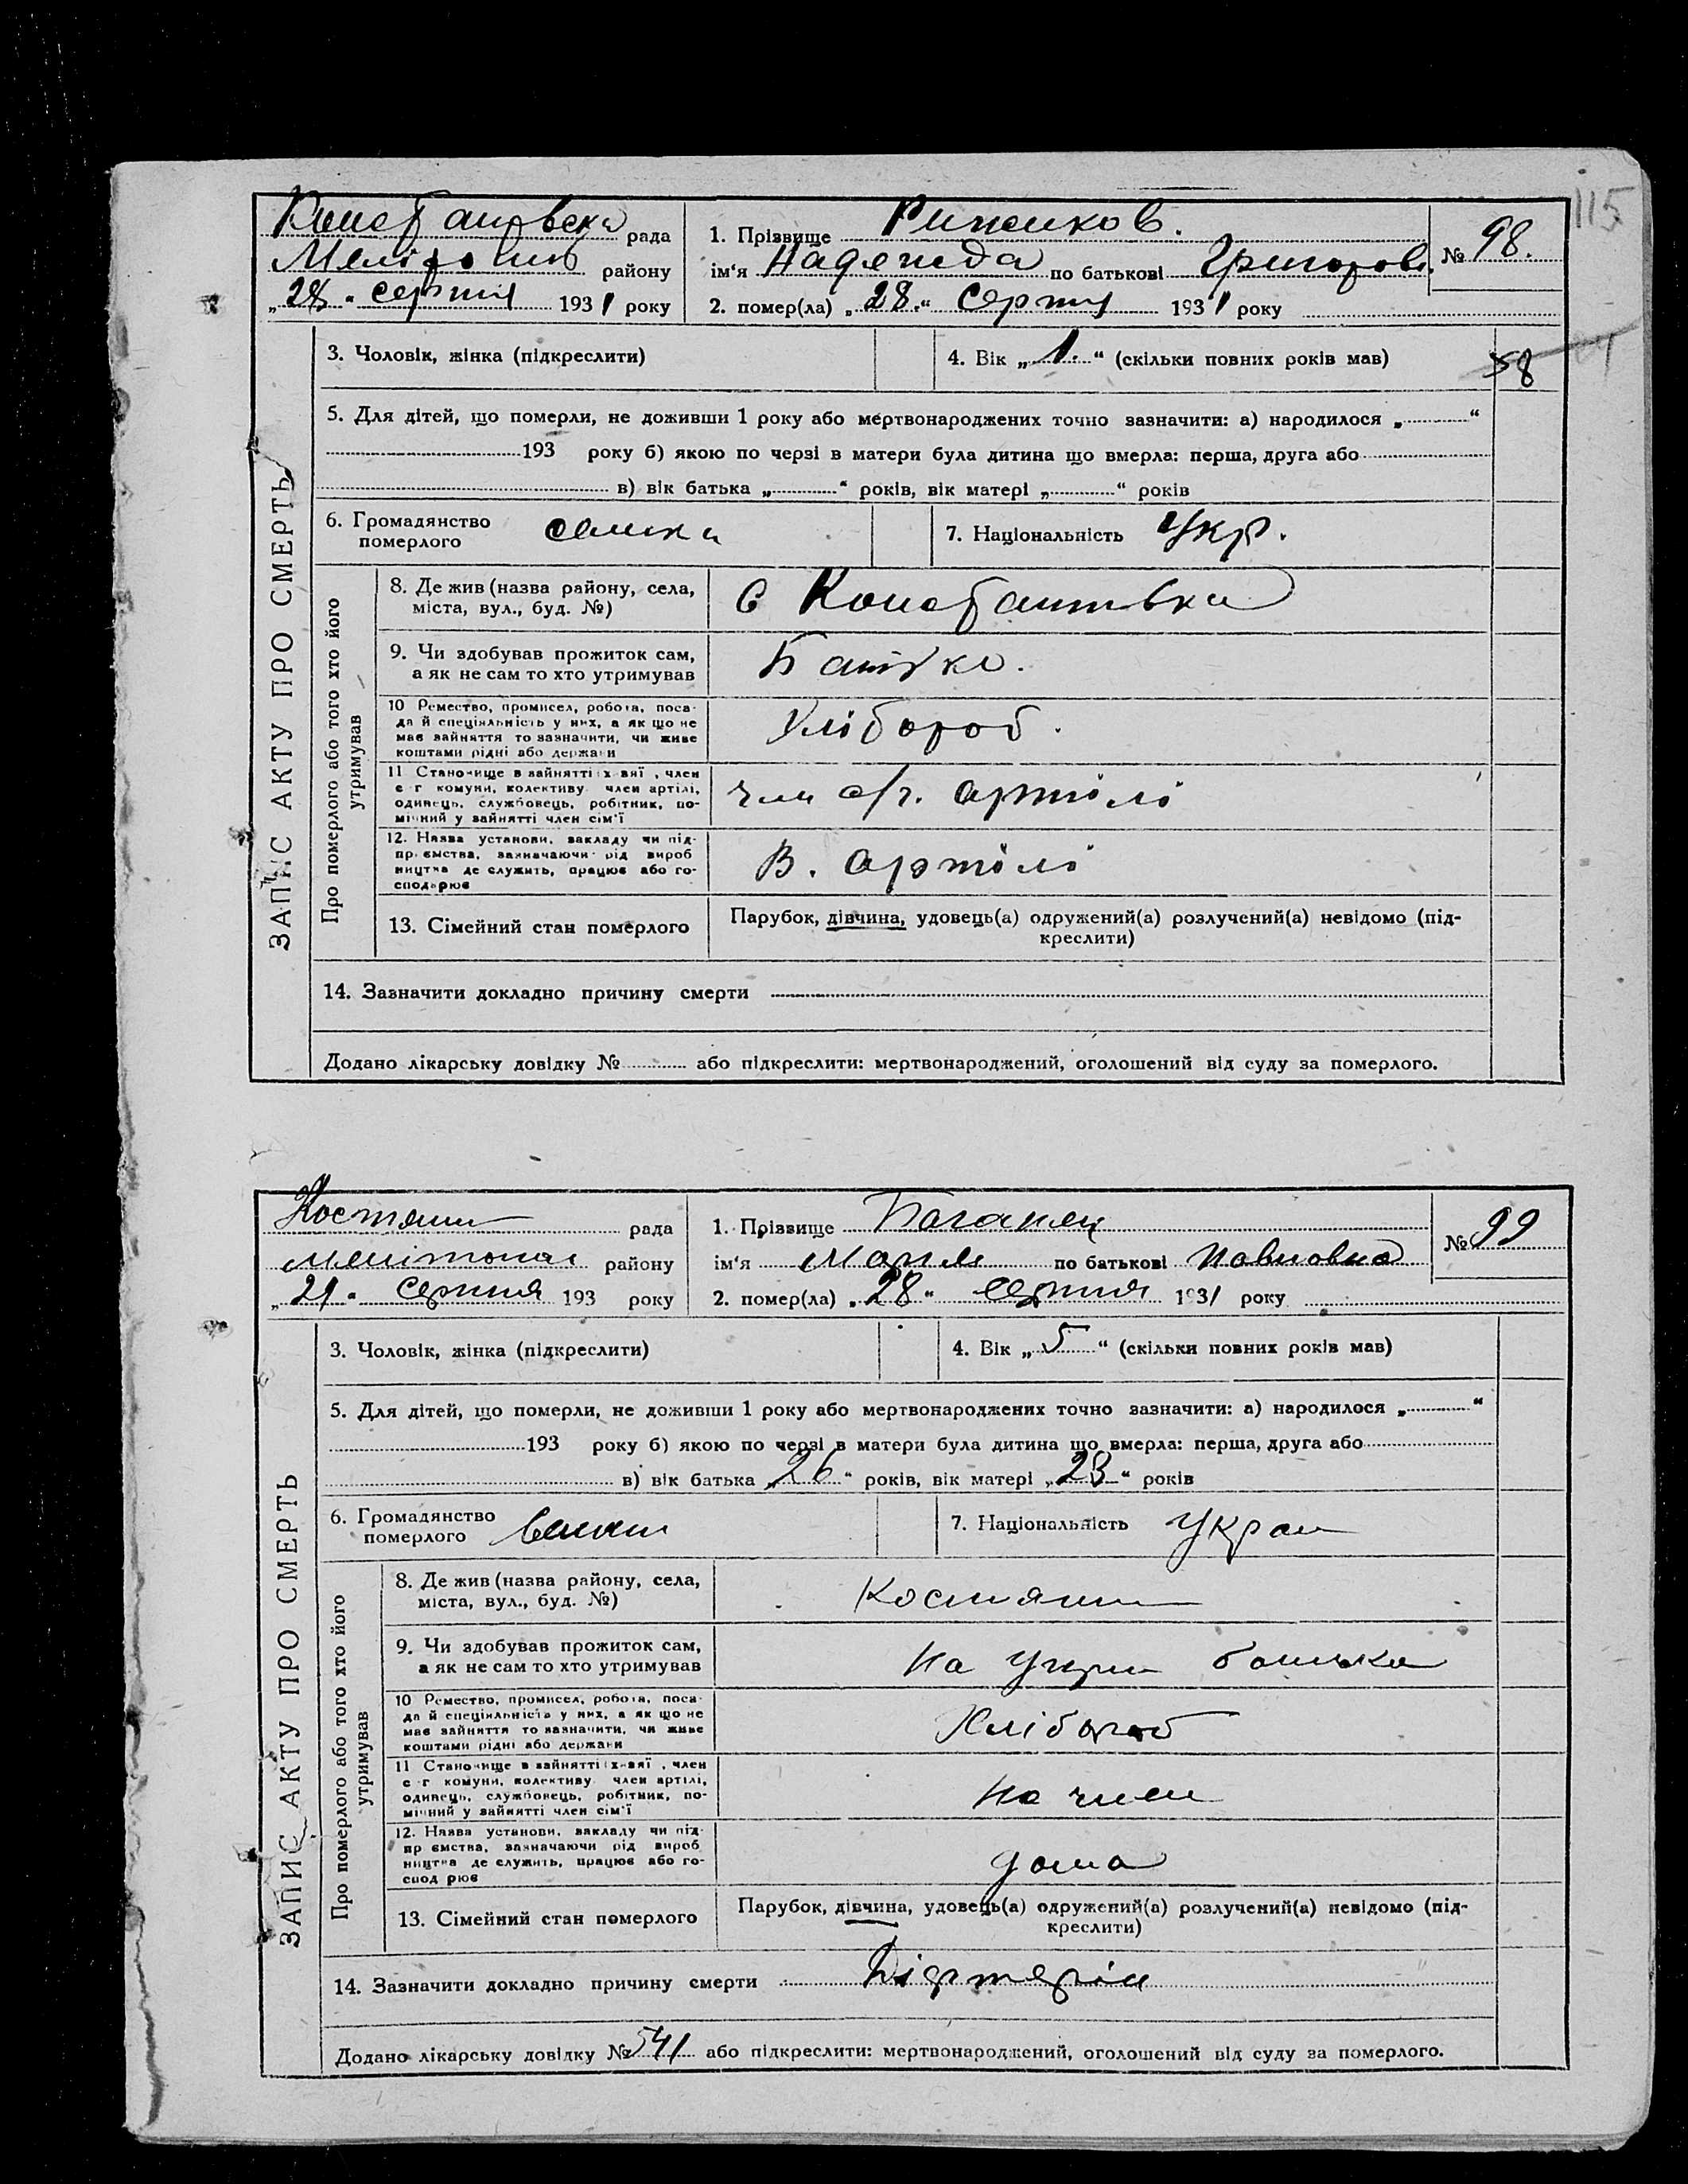 115
Констановска рада
Мелітопил району
„28“ серпня 1931 року
1. Прізвище Рижиков.
ім‘я Надежда по батькові Григоров.
2. помер(ла) „28“ Серпня 1931 року
№ 98.
3. Чоловік, жінка (підкреслити)
4. Вік „1.“ (скільки повних років мав)
58
5. Для дітей, що померли, не доживши 1 року або мертвонароджених точно зазначити: а) народилося „ “
193 року б) якою по черзі в матери була дитина що вмерла: перша, друга або
в) вік батька „ “ років, вік матері „ “ років
6. Громадянство
померлого
7. Національність Укр.
ЗАПИС АКТУ ПРО СМЕРТЬ
Про померлого або того хто його
утримував
8. Де жив (назва району, села,
міста, вул., буд. №)
С Константівка
9. Чи здобував прожиток сам,
а як не сам то хто утримував
Батько.
10 Ремество, промисел, робота, поса-
да й спеціяльність у них, а як що не
має зайняття то зазначити, чи живе
коштами рідні або держави
Хлібороб.
11 Становище в зайнятті: хазяї, член
с г комуни, колективу член артілі,
одинець, службовець, робітник, по-
мічний у зайнятті член сім‘ї
член с/г. артілі
12. Назва установи, закладу чи під-
приємства, зазначаючи рід вироб
ництва де служить, працює або го-
сподарює
В. артілі
13. Сімейний стан померлого
Парубок, дівчина, удовець(а) одружений(а) розлучений(а) невідомо (під-
креслити)
14. Зазначити докладно причину смерти
Додано лікарську довідку № або підкреслити: мертвонароджений, оголошений від суду за померлого.
Костян рада
Мелітопол району
„29“ Серпня 193 року
1. Прізвище
ім‘я Мария по батькові Павловна
2. помер(ла) „28“ Серпня 1931 року
№ 99
3. Чоловік, жінка (підкреслити)
4. Вік „5“ (скільки повних років мав)
5. Для дітей, що померли, не доживши 1 року або мертвонароджених точно зазначити: а) народилося „ “
193 року б) якою по черзі в матери була дитина що вмерла: перша, друга або
в) вік батька „26“ років, вік матері „23“ років
6. Громадянство
померлого
7. Національність Украи
ЗАПИС АКТУ ПРО СМЕРТЬ
Про померлого або того хто його
утримував
8. Де жив (назва району, села,
міста, вул., буд. №)
Костян
9. Чи здобував прожиток сам,
а як не сам то хто утримував
На утрим батька
10 Ремество, промисел, робота, поса-
да й спеціяльність у них, а як що не
має зайняття то зазначити, чи живе
коштами рідні або держави
Хлібороб
11 Становище в зайнятті: хазяї, член
с г комуни, колективу член артілі,
одинець, службовець, робітник, по-
мічний у зайнятті член сім‘ї
На член
12. Назва установи, закладу чи під-
приємства, зазначаючи рід вироб
ництва де служить, працює або го-
сподарює
дома
13. Сімейний стан померлого
Парубок, дівчина, удовець(а) одружений(а) розлучений(а) невідомо (під-
креслити)
14. Зазначити докладно причину смерти Діфтерія
Додано лікарську довідку № 541 або підкреслити: мертвонароджений, оголошений від суду за померлого.